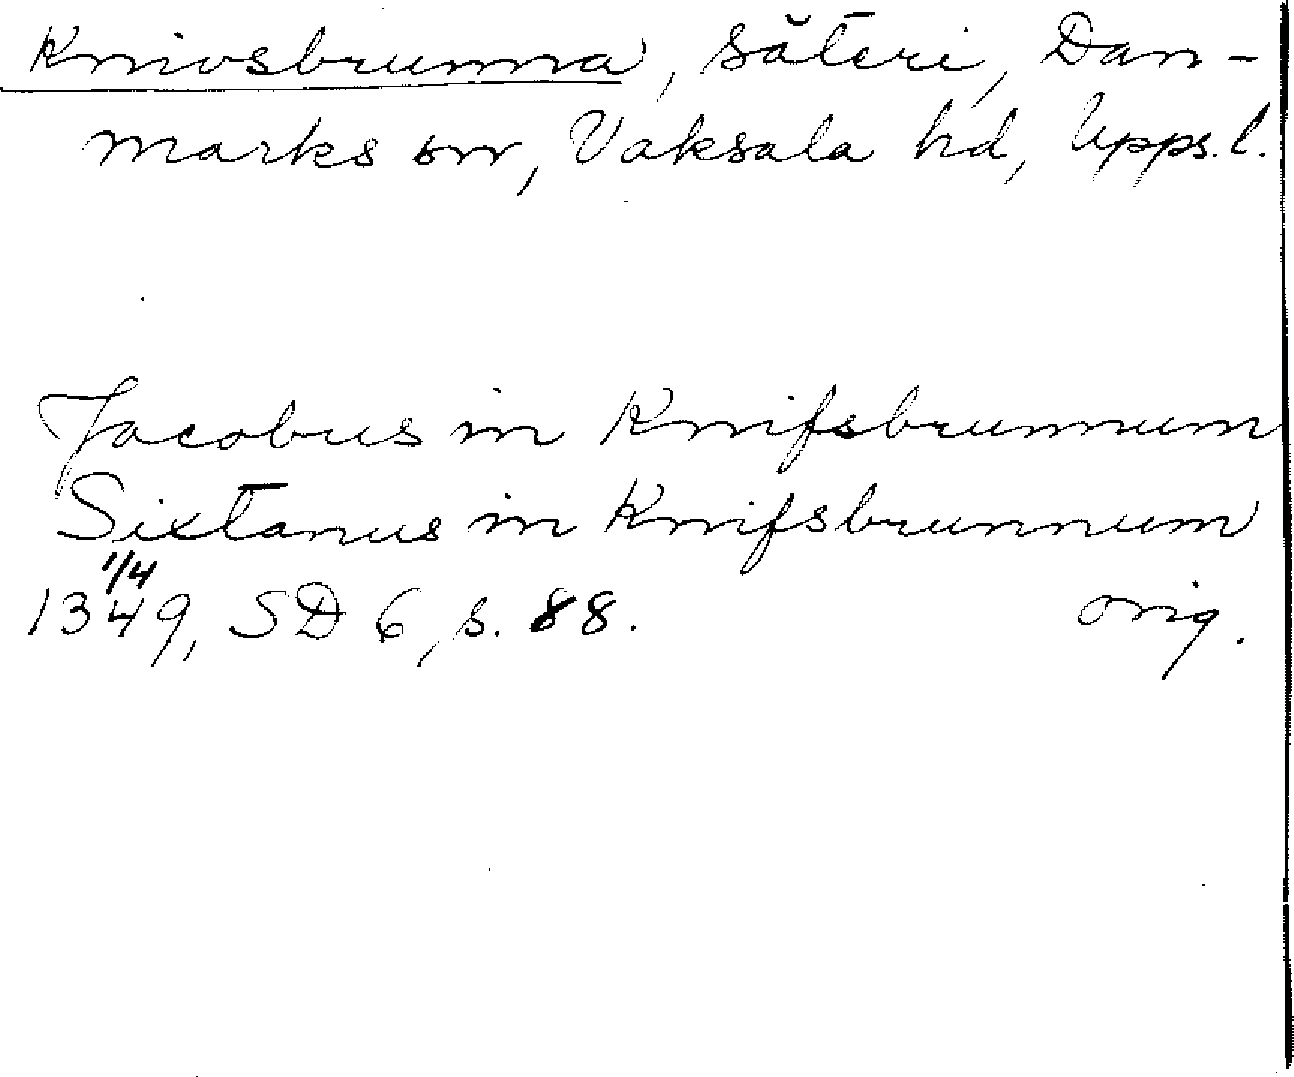 Knivsbrunna, säteri, Dan-
marks sn, Vaksala hd, Upps. l.
Jacobus in Knifsbrunnum
Sixtanus in Knifsbrunnum
1/4
1349, SD 6, s. 88. orig.